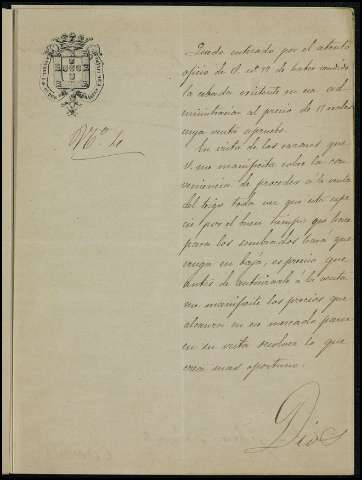 Nº 4
Quedo enterado por el atento
oficio de V. nº 12 de haber vendido
la cebada existente en esa ad-
ministracion al precio de 17 reales
cuya venta apruebo.
En vista de las razones que
V. me manifiesta sobre la con-
veniencia de proceder á la venta
del trigo toda vez que
por el buen tiempo que hace
para los sembrados hará que
venga en baja, es preciso que
antes de autorizarle á la venta
me manifieste los precios que
alcanza en ese mercado para
en su vista resolver lo que
crea mas oportuno.
Dios